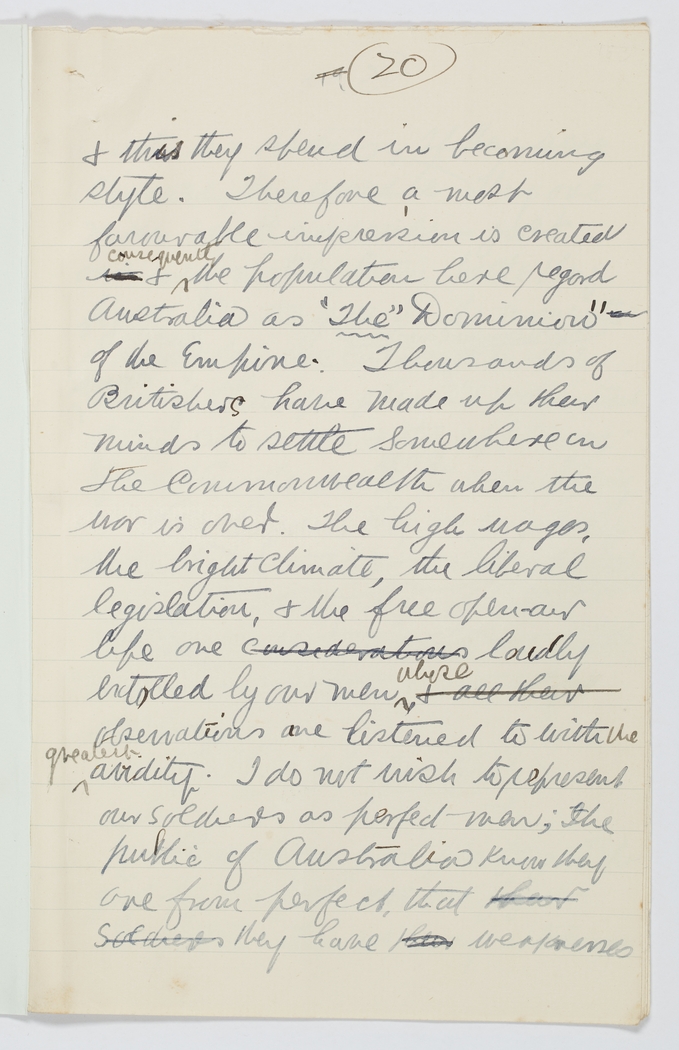 20
& this they spend in becoming
style. Therefore a most
favourable impression is created
consequently
in & the population here regard
Australia as "The" Dominion"
of the Empire. Thousands of
Britishers have made up their
minds to settle somewhere in
the Commonwealth when the
war is over. The high wages,
the bright climate, the liberal
legislation, & the free open-air
life are considerations loudly
extolled by our men, & all their
whose
observations are listened to with the
greatest
avidity. I do not wish to represent
our soldiers as perfect men; the
public of Australia know they
are from perfect, that their
soldiers they have their weaknesses